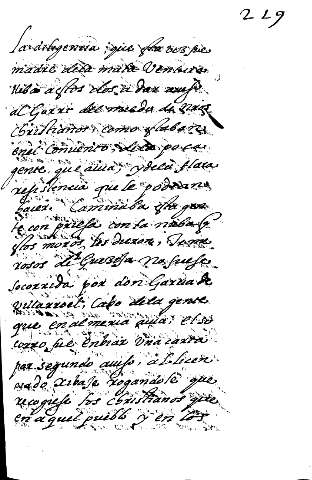 219
La deligencia, que
madre de la mala Ventura
a estos dos, a dar aviso
al Garri del
christianos, como estaban
en el convento de la poca
gente que avia, y de la flaca
resistencia que le podrian
hacer. Caminaba esta gen
te con priesa con la nueba q
estos moros les dieron, Teme
rosos de q Guecija no fuese
socorrida por don Garcia de
Villarroel, Cabo de la gente
que en almeria avia; el so
corro fue enbiar una carta
por segundo aviso, al licen
ciado rogandole que
recogiese los christianos que
en aquel pueblo y en los